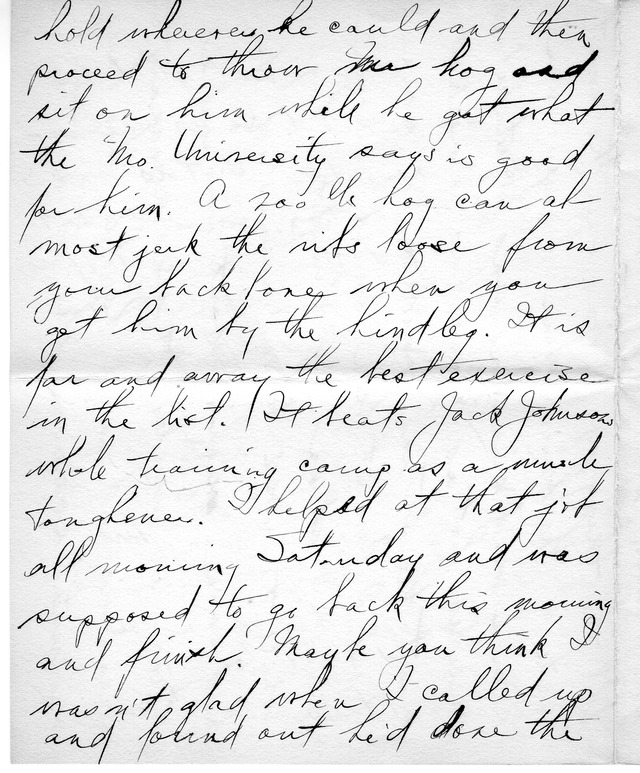 hold wherever he could and then
proceed to throw Mr hog and
sit on him while he got what
the Mo. University says is good
for him. A 200 lb hog can al
most jerk the ribs loose from
your backbone when you
get him by the hind leg. It is
far and away the best exercise
in the list. It beats Jack Johnsons
whole training camp as a muscle
toughener. I helped at that job
all morning Saturday and was
supposed to go back this morning
and finish. Maybe you think I
wasn't glad when I called up
and found out he'd done the